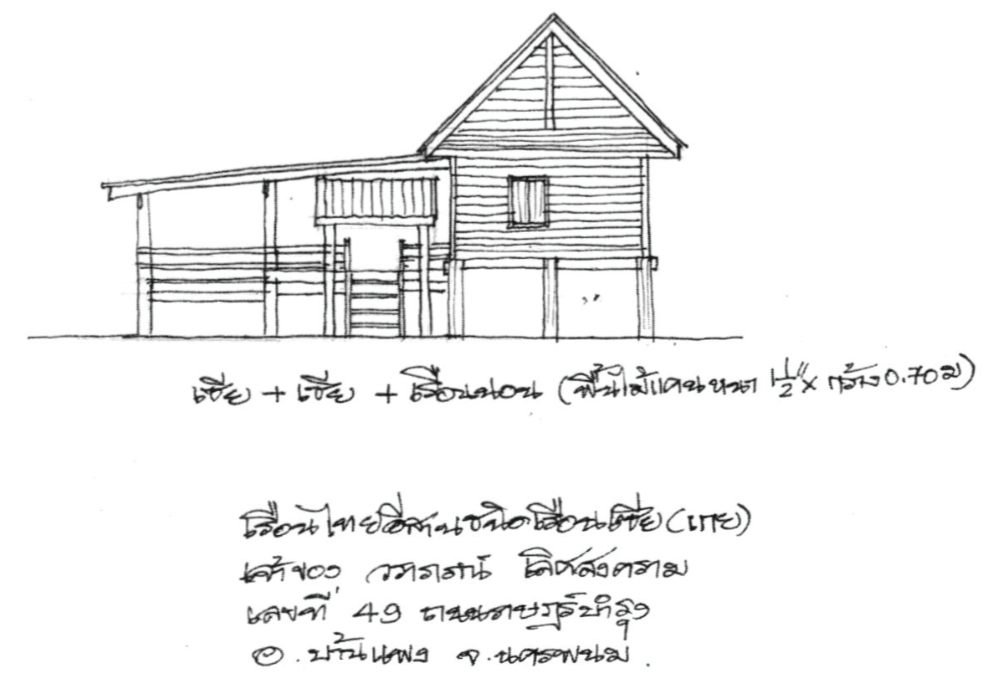 เซีย + เซีย + เรือนนอน (พื้นไม้แคนหนา 1½" x กว้าง 0.70 ม)
เรือนไทยอีสานชนิดเรือนเซีย (เกย)
เจ้าของ เลิศสงคราม
เลขที่ 49 ถนนราษฎร์บำรุง
อ. บ้านแพง จ. นครพนม.